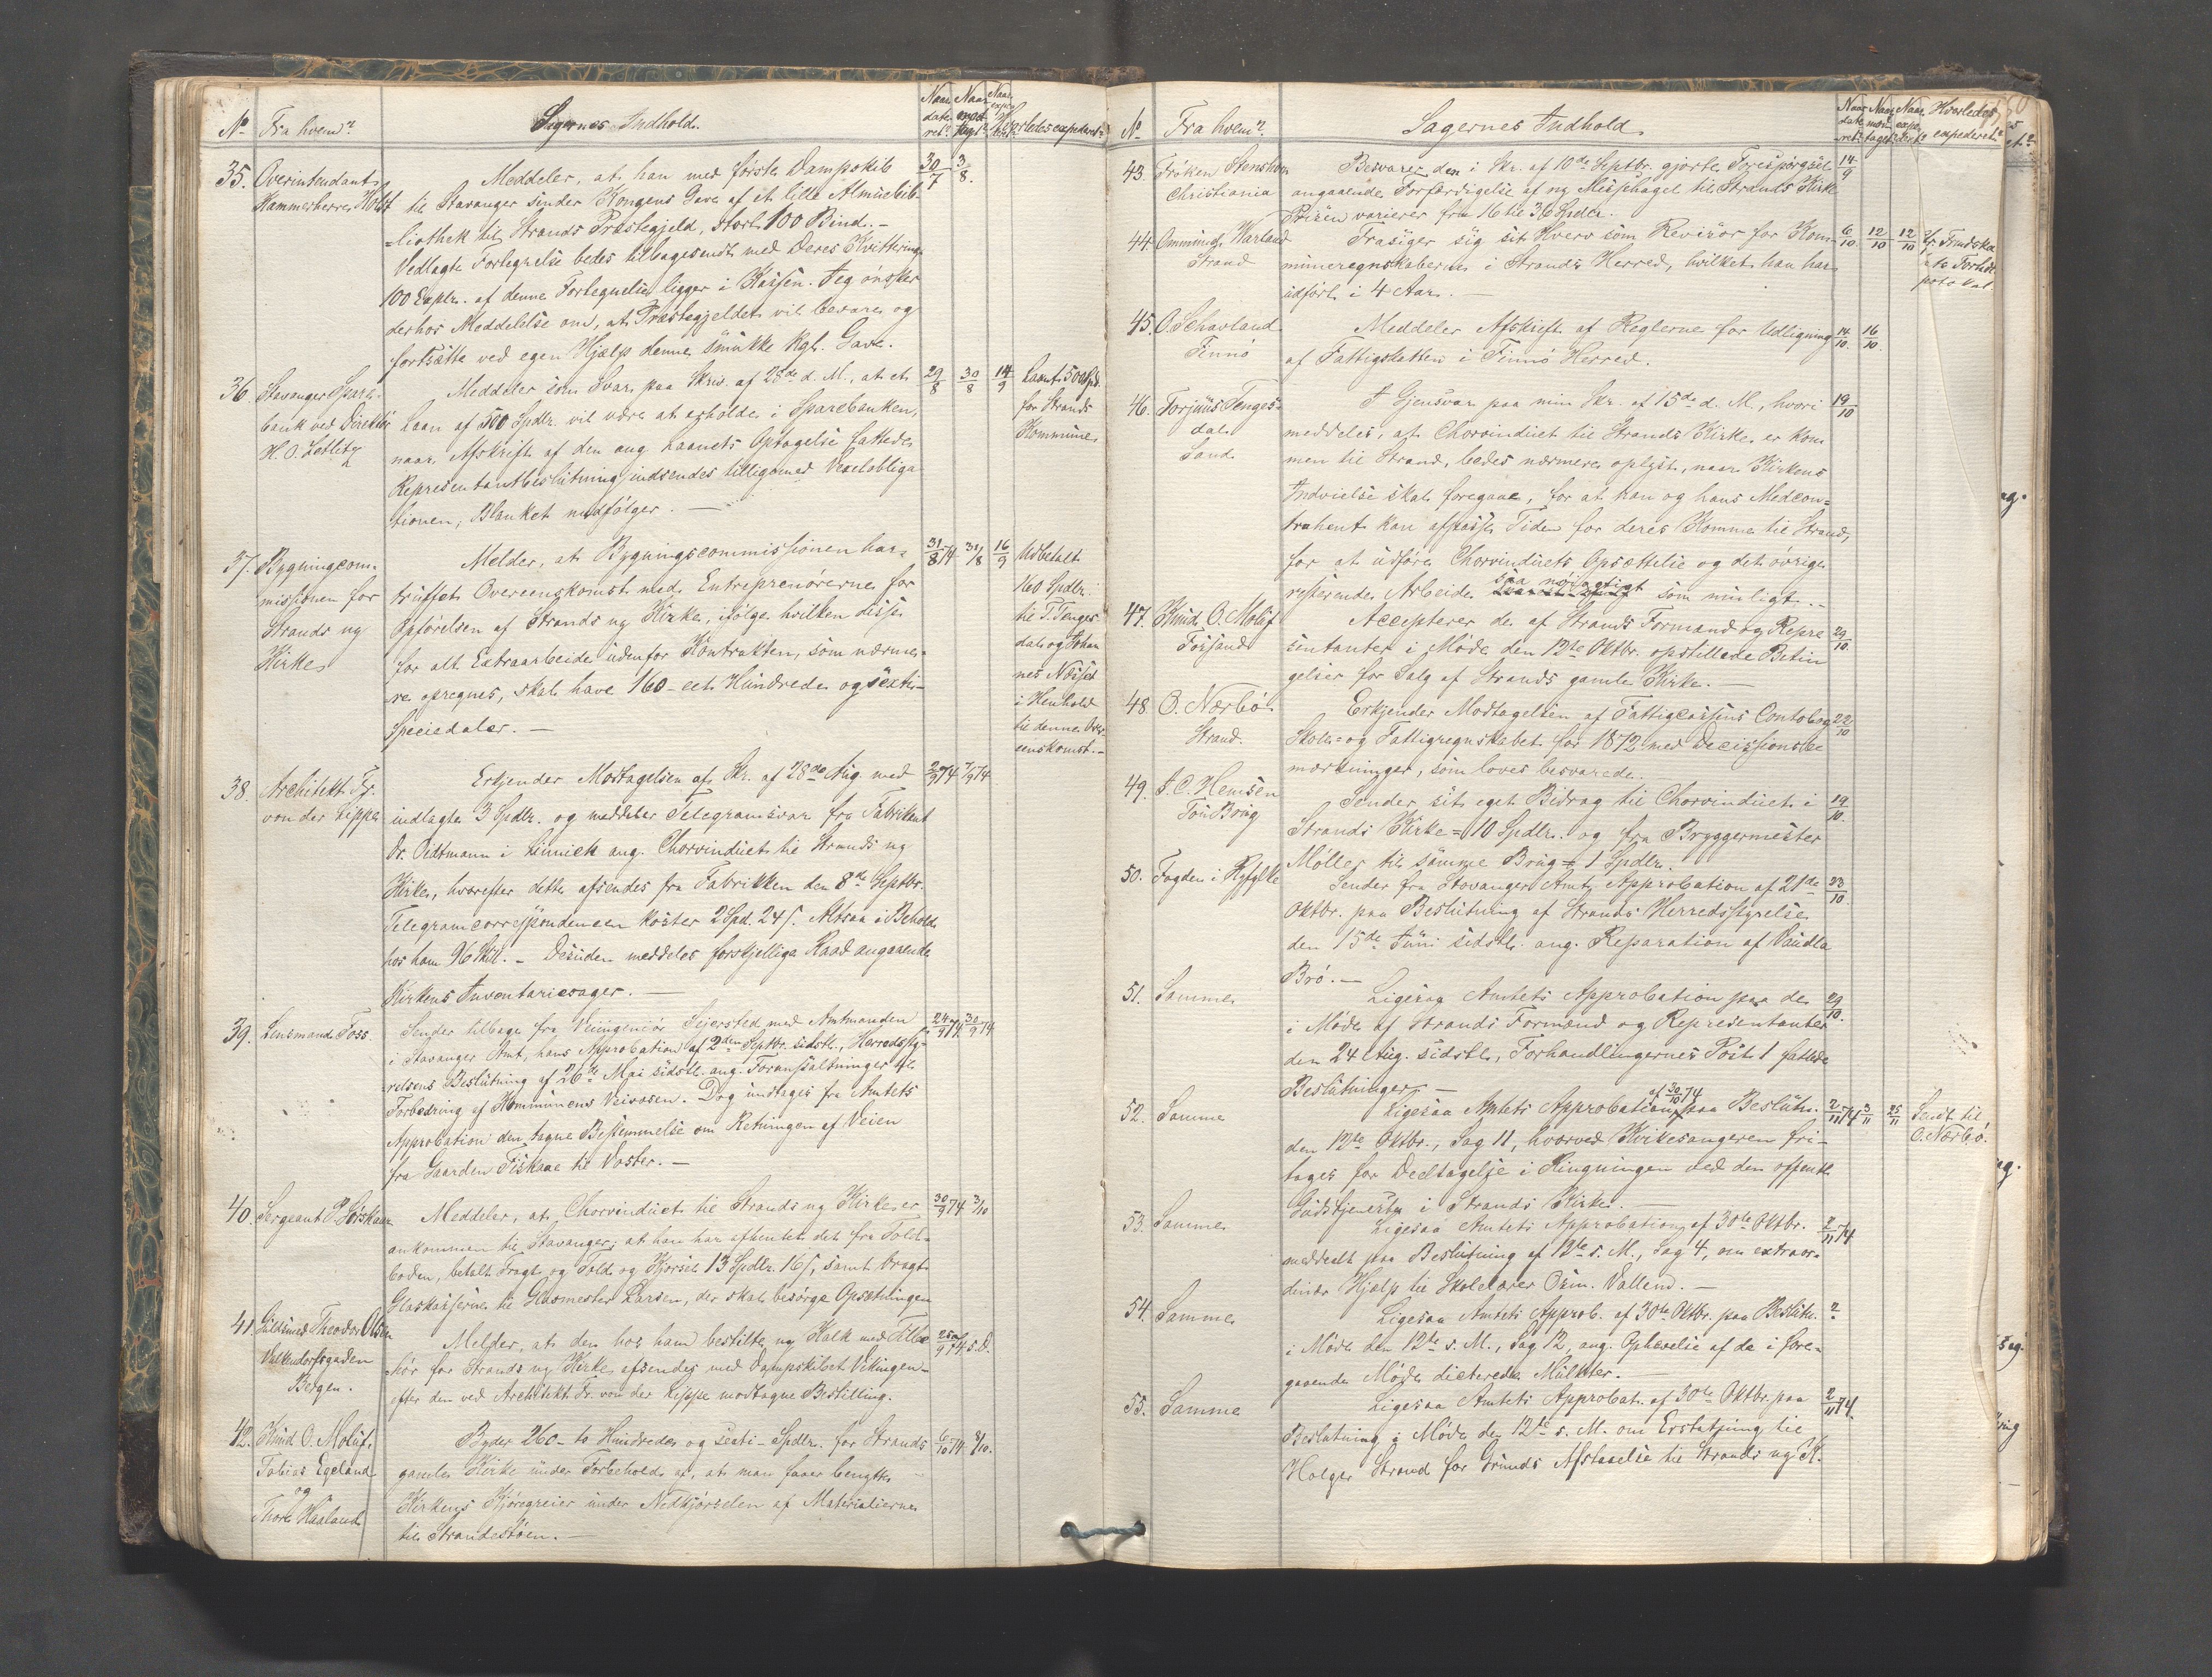 No Fra hvem? Sagernes Indhold. Naar dateret? Naar modtaget? Naar expederet? Hvorledes expederet?
35. Overintendant Kammerherre Holst
Meddeler, at han med første Dampskib 30/7 3/8.
til Stavanger sender Kongens Gave af et lille Almuebib-
liothek til Strands Præstegjeld, stort 100 Bind. -
Vedlagte Fortegnelse bedes tilbagesendt med Deres Kvittering
100 Explr. af denne Fortegnelse ligger i Kassen. Jeg ønsker
derhos Meddelelse om, at Præstegjeldet vil bevare og
fortsætte ved egen Hjælp denne smukke Kgl. Gave.
36. Stavanger Spare-
bank ved Direktør
H. O. Zetlitz
Meddeler som Svar paa Skriv. af 28de d. M., at et 29/8 30/8 14/9
Laan af 500 Spdlr. vil være at erholde i Sparebanken,
naar Afskrift af den ang. Laanets Optagelse fattede
Representantbeslutning indsendes tilligemed Vexelobliga
tionen, Blanket medfølger. -
Laant 500 Spd.
for Strands
Kommune
37. Bygningscom-
missionen for
Strands ny
Kirke
Melder, at Bygningscommissionen har 31/8 74 31/8 16/9
truffet Overenskomst med Entreprenørerne for
Opførelsen af Strands ny Kirke, ifølge hvilken disse
for alt Extraarbeide udenfor Kontrakten, som nærme-
re opregnes, skal have 160 - eet Hundrede og sexti -
Speciedaler. -
Udbetalt
160 Spdlr.
til T. Tenges
dal og Johan
nes Næset
i Henhold
til denne Over
enskomst. -
38. Architekt Fr.
von der Lippe
Erkjender Modtagelsen af Skr. af 28de Aug. med 2/9 74 7/9 74
indlagte 3 Spdlr. og meddeler Telegramsvar fra Fabrikant
Dr. Oidtmann i Linnich ang. Chorvinduet til Strands ny
Kirke, hvorefter dette afsendes fra Fabrikken den 8de Septbr.
Telegramcorrespondencen koster 2 Spd. 24 s. Altsaa i Behold
hos ham 96 Skill. - Desuden meddeles forskjellige Raad angaaende
Kirkens Inventariesager. -
39. Lensmand Foss
Sender tilbage fra Veiingeniør Sejersted med Amtmanden 24/9 74 30/9 74
i Stavanger Amt, hans Approbation af 2den Septbr. sidstl., Herredssty-
relsens Beslutning af 26de Mai sidstl. ang. Foranstaltninger til
Forbedring af Kommunens Veivæsen. Dog undtages fra Amtets
Approbation den tagne Bestemmelse om Retningen af Veien
fra Gaarden Fiskaae til Voster. -
40. Sergeant P. Sørskaar
Meddeler, at Chorvinduet til Strands ny Kirke er 30/9 74 3/10
ankommen til Stavanger; at han har afhentet det fra Told-
boden, betalt Fragt og Told og Kjørsel 13 Spdlr. 16 s, samt bragt
Glaskasserne til Glasmester Larsen, der skal besørge Opsætningen
41. Guldsmed Theodor Olsen
Valkendorfsgaden
Bergen.
Melder, at den hos ham bestilte ny Kalk med Tilbe 25/9 74 s. D.
hør for Strands ny Kirke afsendes med Dampskibet Vikingen
efter den ved Architekt Fr. von der Lippe modtagne Bestilling.
42. Knud O. Moluf,
Tobias Egeland
og
Thore Haaland
Byder 260 - to Hundrede og sexti - Spdlr. for Strands 6/10 74. 8/10.
gamle Kirke under Forbehold af, at man faaer benytte
Kirkens Kjøregreier under Nedkjørselen af Materialierne
til Strandestøen. -
No Fra hvem? Sagernes Indhold. Naar dateret? Naar modtaget? Naar expederet? Hvorledes expederet?
43. Frøken
Christiania
Besvarer den i Skr. af 10de Septbr. gjorte Forespørgsel 14/9
angaaende Forfærdigelse af ny Messehagel til Strands Kirke
Prisen varierer fra 16 til 36 Spdlr.
44. Ommund Warland
Strand
Frasiger sig sit Hverv som Revisor for Kom- 6/10 12/10 12/10
muneregnskaberne i Strands Herred, hvilket han har
udført i 4 Aar. -
45. O. Schavland
Finnø
Meddeler Afskrift af Reglerne for Udligning 14/10. 16/10.
af Fattigskatten i Finnø Herred.
46. Torjuus Tenges-
dal
Sand
I Gjensvar paa min Skr. af 15de d. M., hvori 19/10
meddeles, at Chorvinduet til Strands Kirke er kom
men til Strand, bedes nærmere oplyst, naar Kirkens
Indvielse skal foregaae, for at han og hans Medcon-
trahent kan afpasse Tiden for deres Komme til Strand,
for at udføre Chorvinduets Opsættelse og det øvrige
resterende Arbeide saa nøiagtigt som muligt. -
47. Knud O. Moluf
Fossand
Accepterer de af Strands Formænd og Repre 29/10.
sentanter i Møde den 12te Oktbr. opstillede Betin
gelser for Salg af Strands gamle Kirke. -
48. O. Nærbø
Strand.
Erkjender Modtagelsen af Fattigcassens Contobog 22/10
Skole- og Fattigregnskabet for 1872 med Decissionsbe
mærkninger, som loves besvarede.
49. J. C. Hemsen
Tou Brug
Sender sit eget Bidrag til Chorvinduet i 19/10.
Strands Kirke = 10 Spdlr. og fra Bryggermester
Møller til samme Brug = 1 Spdlr.
50. Fogden i Ryfylke
Sender fra Stavanger Amt Approbation af 21de 23/10.
Oktbr. paa Beslutning af Strands Herredsstyrelse
den 15de Juni sidstl. ang. Reparation af Vaudla
Bro. -
51. Samme
Ligesaa Amtets Approbation paa de 29/10.
i Møde af Strands Formænd og Representanter
den 24 Aug. sidstl., Forhandlingernes Post 1 fattede
Beslutninger. -
52. Samme
Ligesaa Amtets Approbation af 30/10 74 paa Beslutn. 2/11 74 3/11 25/11
den 12te Oktbr., Sag 11, hvorved Kirkesangeren fri-
tages for Deeltagelse i Ringningen ved den offentl.
Gudstjeneste i Strands Kirke. -
Sendt til
O. Nærbø.
53. Samme
Ligesaa Amtets Approbation af 30te Oktbr. 2/11 74
meddeelt paa Beslutning af 12te s. M., Sag 4, om extraor-
dinær Hjælp til Skolelærer Osm. Valland. -
54. Samme
Ligesaa Amtets Approb. af 30te Oktbr. paa Beslutn. 2
i Møde den 12te s. M., Sag 12, ang. Ophævelse af de i fore-
gaaende Møde dicterede Mulkter. -
55. Samme
Ligesaa Amtets Approbat. af 30te Oktbr. paa 2/11 74.
Beslutning i Møde den 12te s. M. om Erstatning til
Holger Strand for Grunds Afstaaelse til Strands ny K.